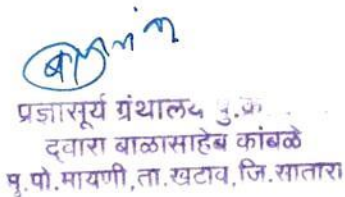 प्रज्ञासूर्य ग्रंथालय पु.क्र. . .
द्वारा बाळासाहेब कांबळे
मु.पो.मायणी,ता.खटाव,जि.सातारा